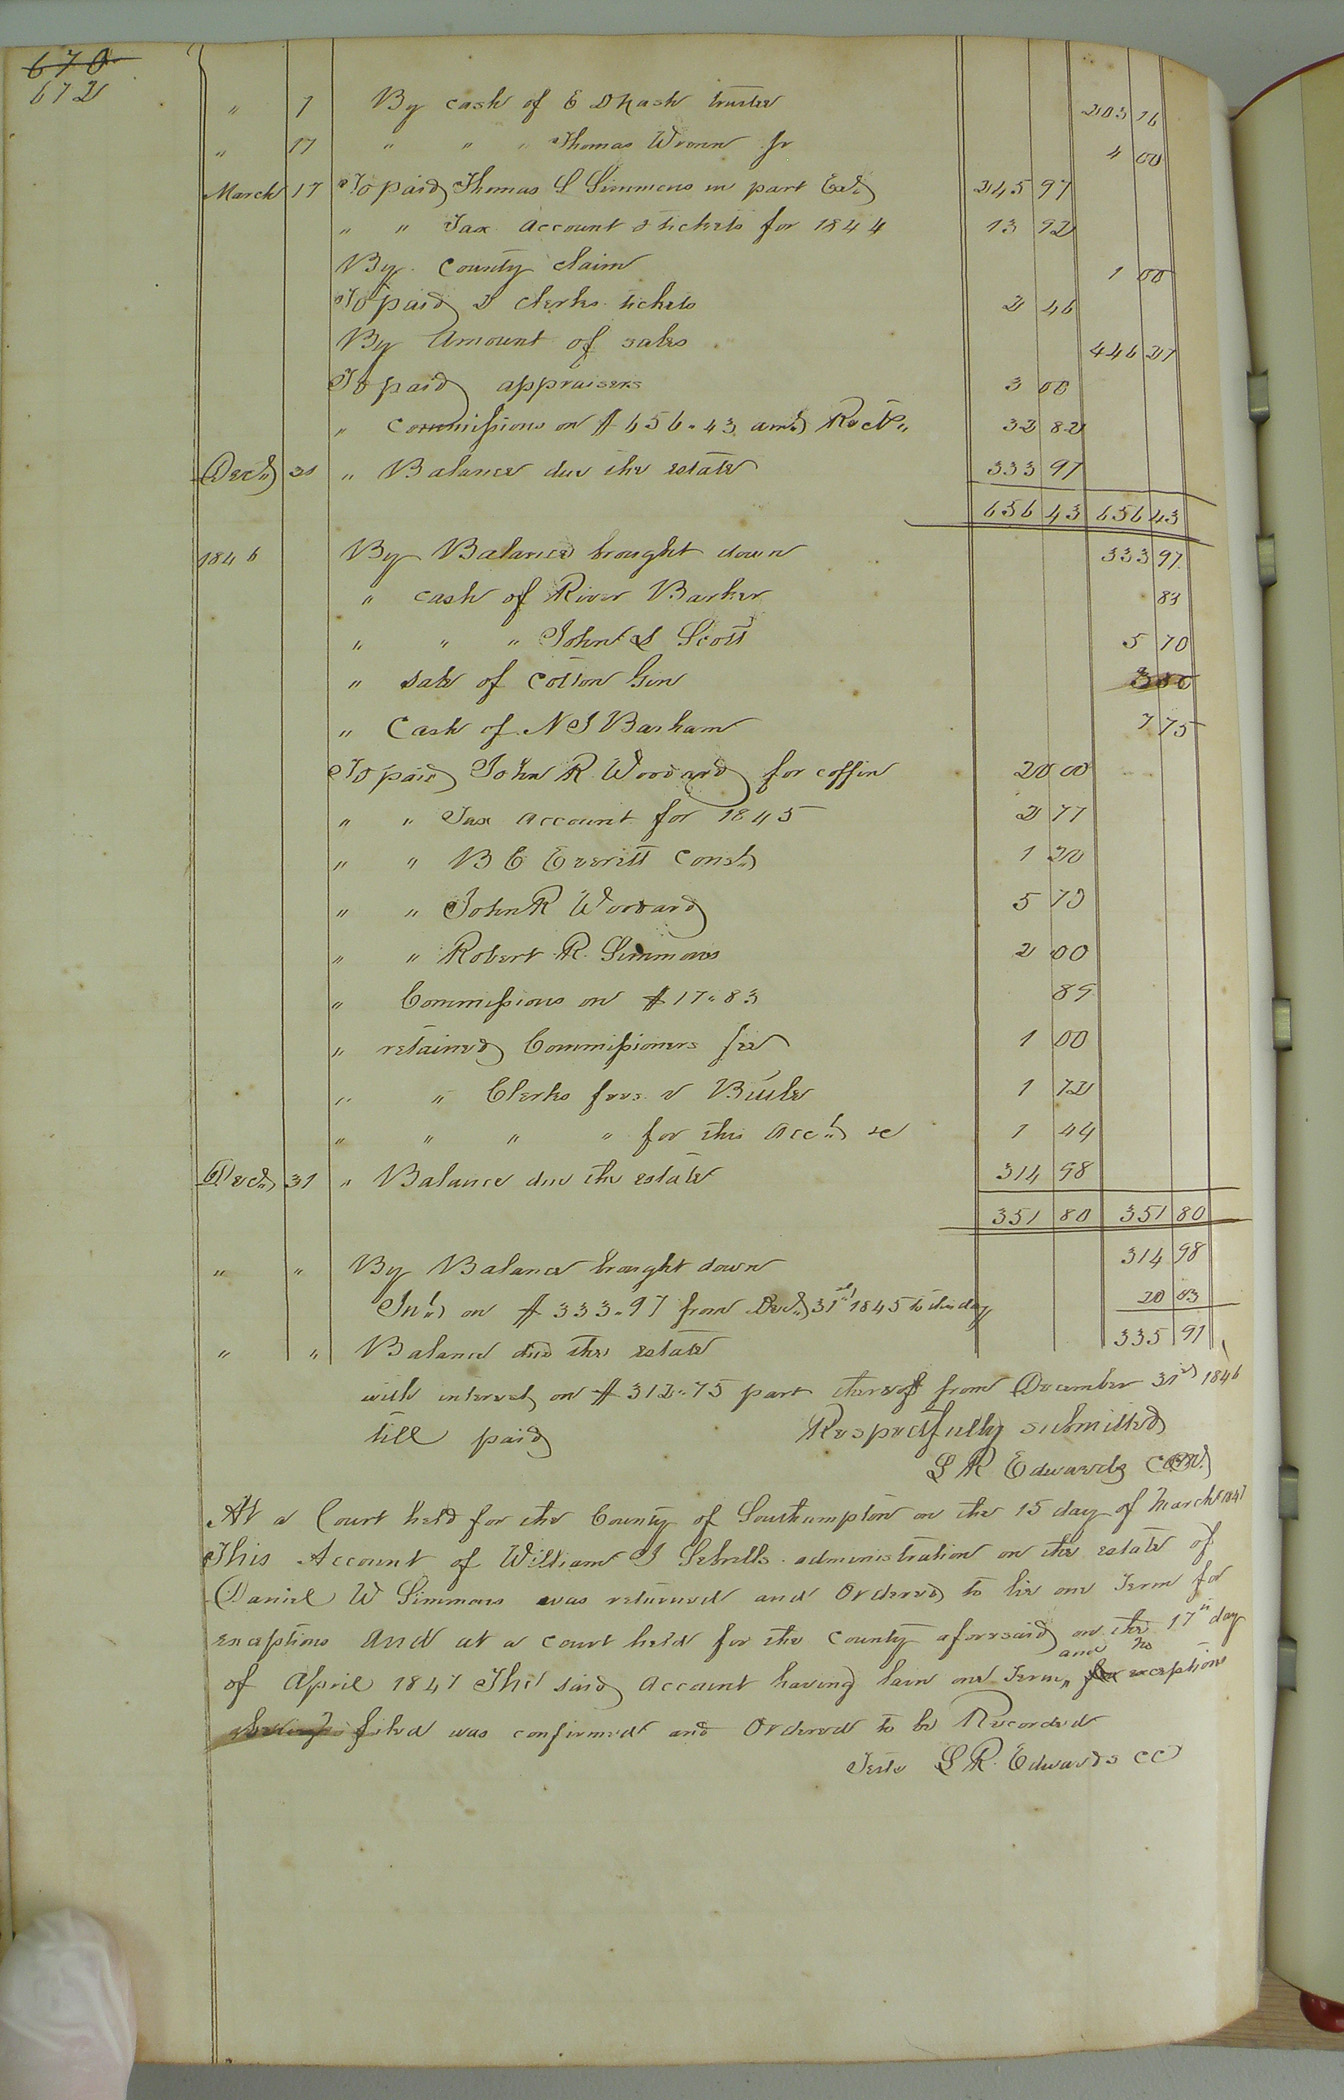 670
672
" 7 By cash of E D Nash trustee 203 16
" 17 " " " Thomas Wrenn Jr 4 00
March 17 To paid Thomas L Simmons in part Exr 245 97
" " Tax account & tickets for 1844 13 92
By County claim 1 00
To paid 2 clerks tickets 2 46
By Amount of sales 446 27
To paid appraisers 3 00
" Commissions on $656.43 amt Rect 32 82
Dec 31 " Balance due the estate 333 97
656 43 656 43
1846 By Balance brought down 333 97
" cash of River Barker 83
" " " John S Scott 5 70
" sale of Cotton Gin 3 00
" Cash of N J Barham 7 75
To paid John R Woodard for coffin 20 00
" " Tax account for 1845 2 77
" " B E Everitt Const 1 20
" " John R Woodard 5 73
" " Robert R. Simmons 2 00
" Commissions on $17.83 89
" retained Commissioners fee 1 00
" " Clerks fees 1 72
" " " " for this acct &c 1 44
Dec 31 " Balance due the estate 314 98
351 80 351 80
" " By Balance brought down 314 98
Int on $333.97 from Dec 31st 1845 to this day 20 03
" " Balance due the estate 335 91
with interest on $312.75 part thereof from December 31st 1846
till paid Respectfully submitted
L R Edwards Com
At a Court held for the County of Southampton on the 15 day of March 1847
This Account of William J Sebrells administration on the estate of
Daniel W Simmons was returned and Ordered to lie one Term for
exceptions And at a court held for the county aforesaid on the 17th day
of April 1847 The said account having lain one Term, and no exceptions
filed was confirmed and Ordered to be Recorded
Teste L R. Edwards CC